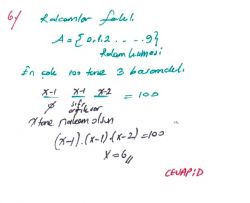 6)
Rakamlar farklı
A = {0,1,2 .... 9}
Rakam kümesi
En çok 100 tane 3 basamaklı
x-1 x-1 x-2 = 100
x tane rakam olsun
(x-1).(x-1)(x-2) = 100
x = 6 //
CEVAP: D